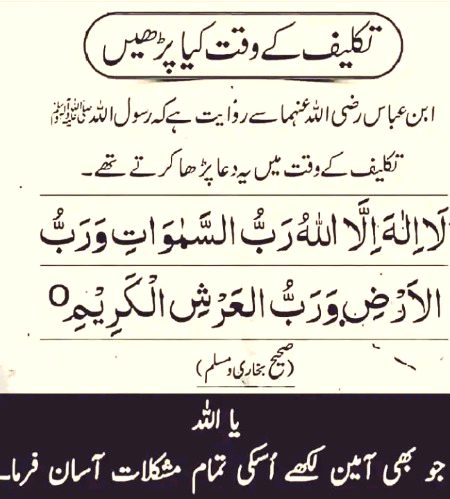 تکلیف کے وقت کیا پڑھیں
ابن عباس رضی اللہ عنہما سے روایت ہے کہ رسول اللہ ﷺ
تکلیف کے وقت میں یہ دعا پڑھا کرتے تھے۔
لَا اِلٰهَ اِلَّا اللهُ رَبُّ السَّمٰوَاتِ وَرَبُّ
الاَرْضِ وَرَبُّ العَرْشِ الْكَرِيْمِ ○
(صحیح بخاری و مسلم)
یا اللہ
جو بھی آمین لکھے اُسکی تمام مشکلات آسان فرما۔